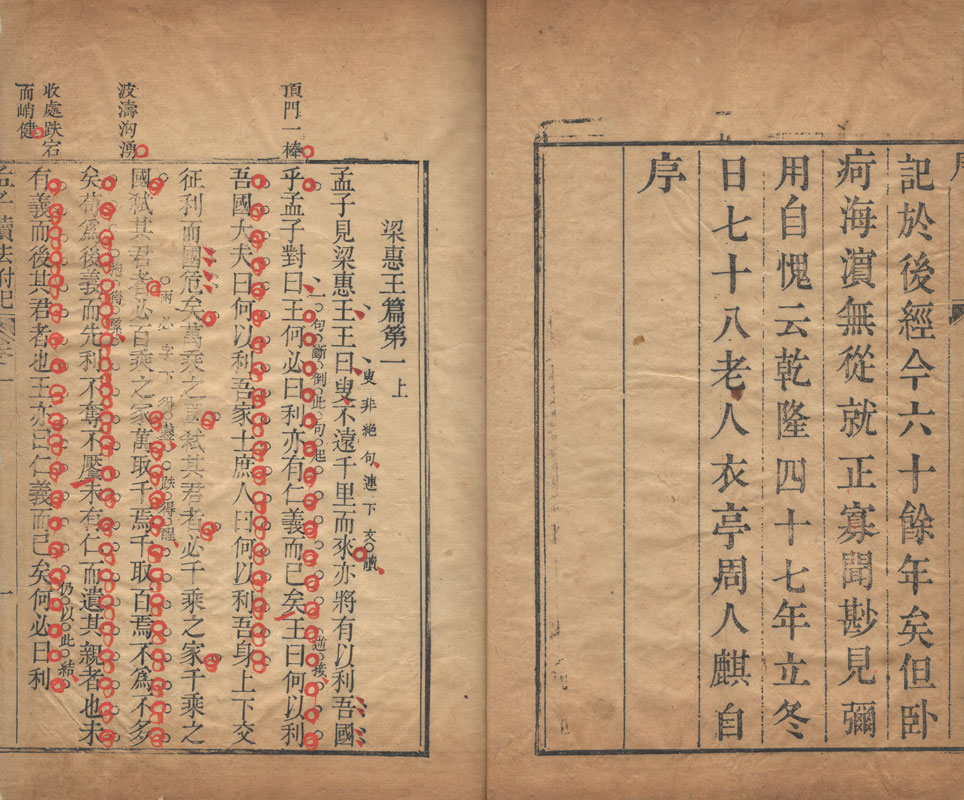 記於後經今六十餘年矣但卧
疴海濵無從就正寡聞尠見彌
用自愧云乾隆四十七年立冬
日七十八老人衣亭周人麒自
序
梁惠王篇第一上
叟非絶句連下文讀
孟子見梁惠王王曰叟不遠千里而來亦將有以利吾國
頂門一棒
一句斷倒此句起
乎孟子對曰王何必曰利亦有仁義而已矣王曰何以利
吾國大夫曰何以利吾家士庶人曰何以利吾身上下交
征利而國危矣萬乘之國弒其君者必千乘之家千乘之
兩必字下得 跌得醒
波濤洶湧
國弒其君者必百乘之家萬取千焉千取百焉不爲不多
矣苟爲後義而先利不奪不饜未有仁而遺其親者也未
仍以此結
收處跌宕
而峭健
有義而後其君者也王亦曰仁義而已矣何必曰利
孟子讀法附記 一